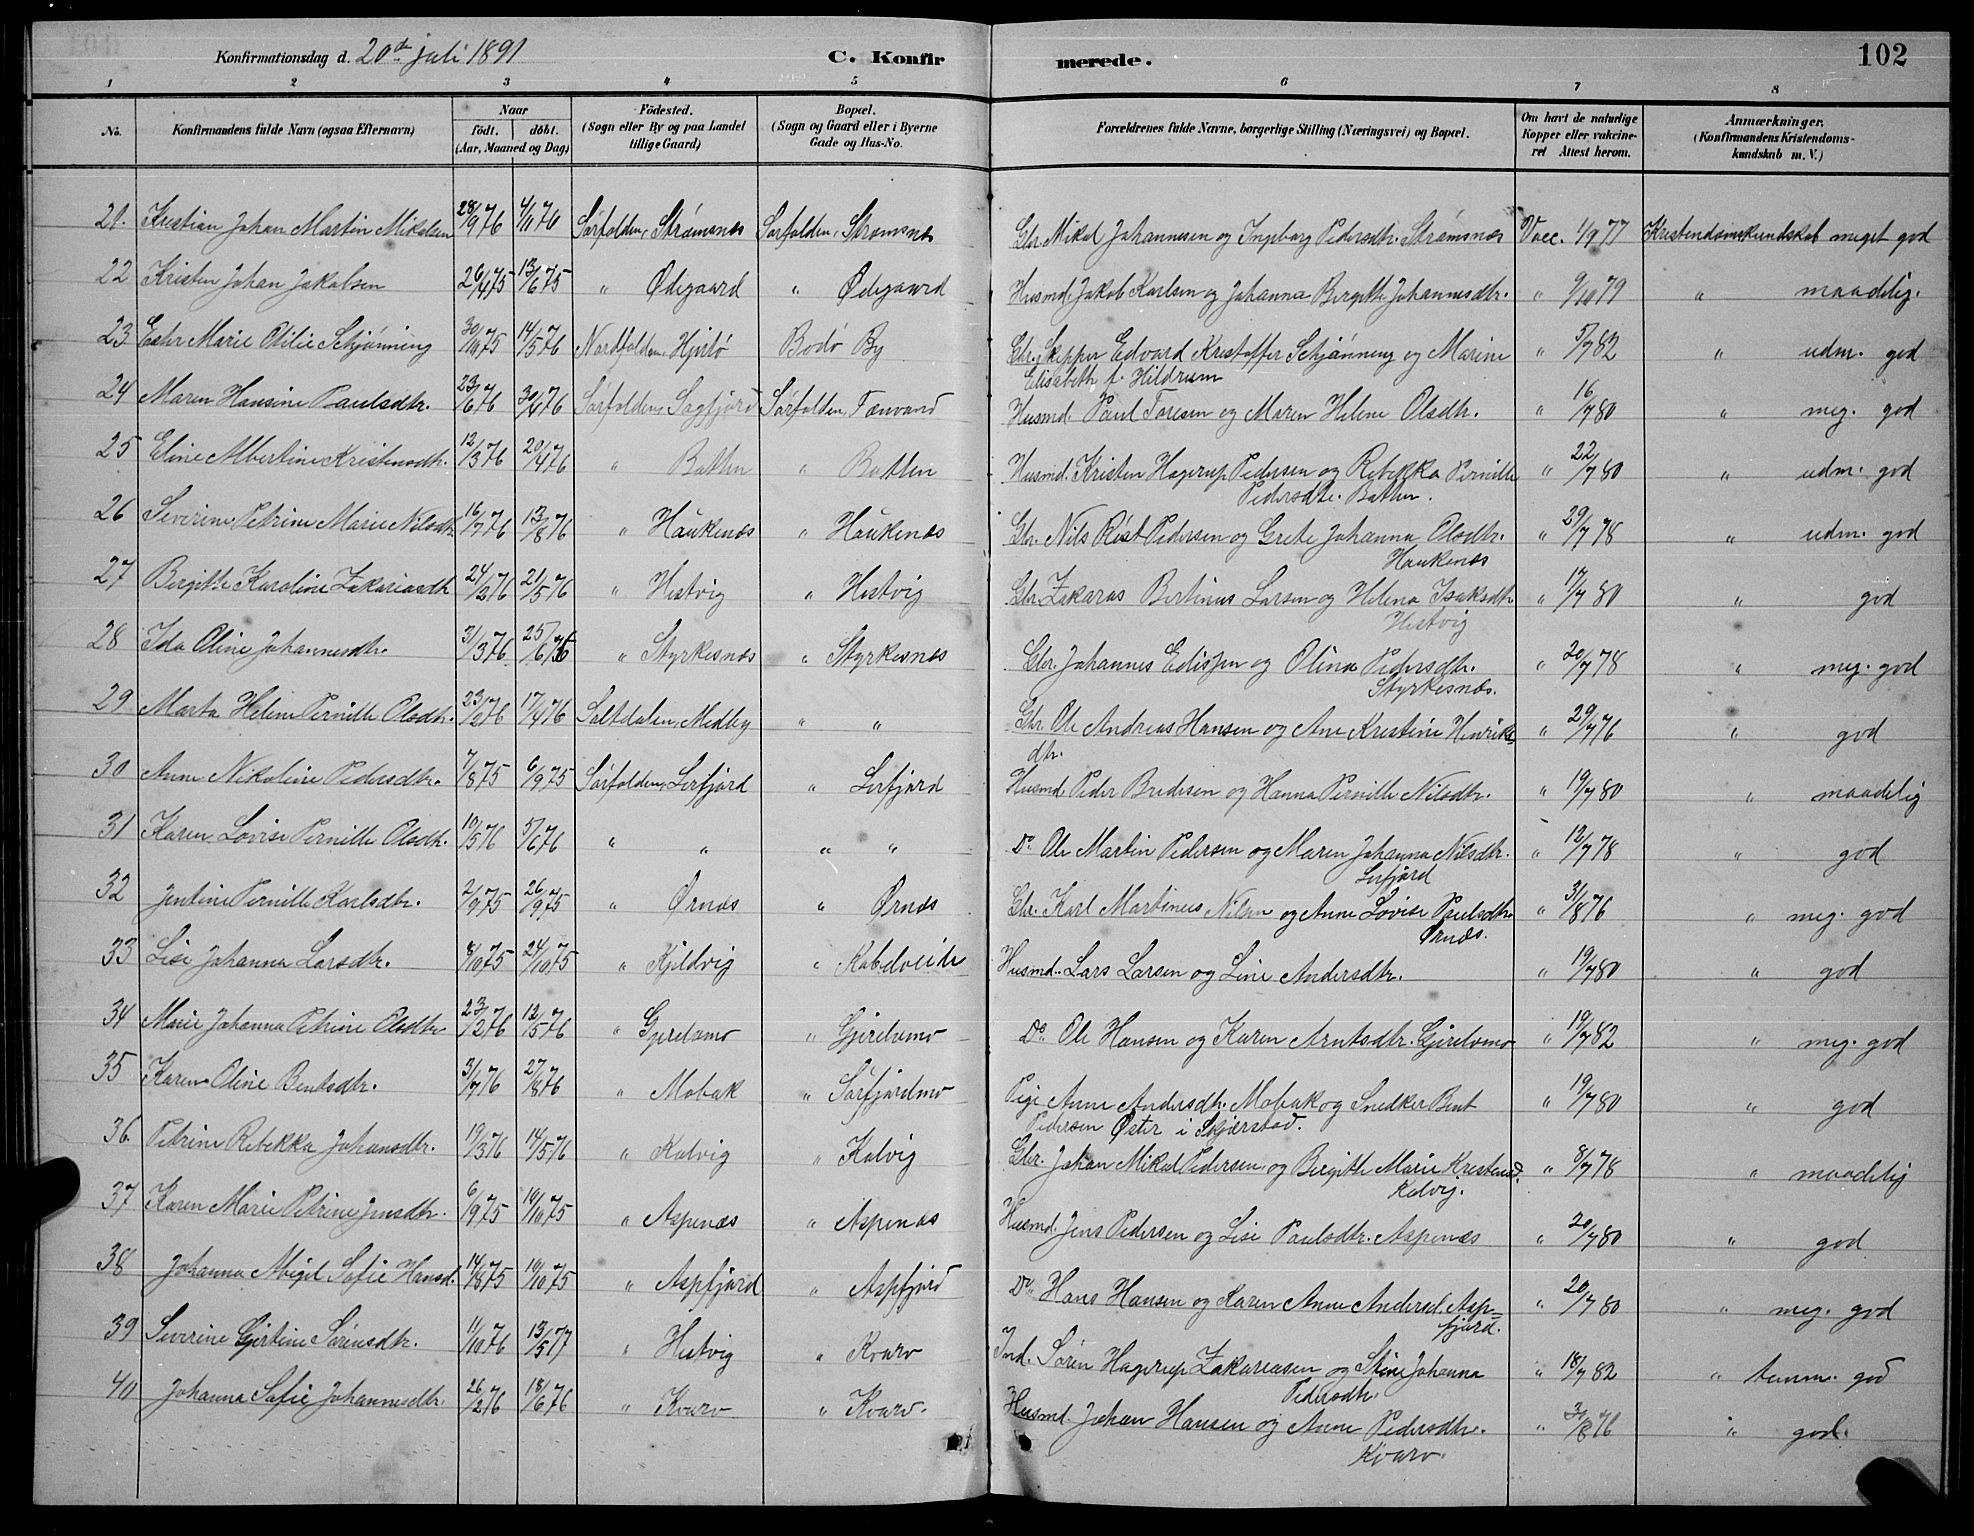 Konfirmationsdag d. 20de juli 1891 C. Konfirmerede. 102
1 2 3 4 5 6 7 8
No. Konfirmandens fulde Navn (ogsaa Efternavn) Naar födt. döbt. (Aar, Maaned og Dag) Födested. (Sogn eller By og paa Landet tillige Gaard) Bopæl. (Sogn og Gaard eller i Byerne Gade og Hus-No. Forældrenes fulde Navne, borgerlige Stilling (Næringsvei) og Bopæl. Om havt de naturlige Kopper eller vakcineret Attest herom. Anmærkninger. (Konfirmandens Kristendomskundskab m. V.)
21. Kristian Johan Martin Mikalsen 28/9 76 4/11 76 Sörfolden, Strømsnes Sörfolden, Strømsnes Gbr. Mikal Johannesen og Ingeborg Pedersdtr. Strømsnes Vacc. 1/9 77 Kristendomskundskab meget god
22 Kristen Johan Jakobsen 26/4 75 13/6 75 " Ødegaard " Ødegaard Husmd. Jakob Karlsen og Johanna Birgitte Johannesdtr. " 9/10 79 " maadelig.
23 Ester Marie Otilie Schjönning 30/10 75 14/5 76 Nordfolden, Hjertö Bodø By Gbr. Skipper Edvard Kristoffer Schjönning og Marine " 5/7 82 " udm. god
Elisabeth f. Hildrum
24 Maren Hansine Paulsdtr. 23/6 76 30/6 76 Sörfolden, Sagfjord Sörfolden, Tenvand Husmd. Paul Toresen og Maren Helene Olsdtr. " 16/7 80 " meg. god
25 Eline Albertine Kristensdtr. 12/3 76 20/4 76 " Batten " Batten Husmd. Kristen Hagerup Pedersen og Rebekka Pernille " 22/7 80 " udm. god
Pedersdtr. Batten.
26 Severine Petrine Marie Nilsdtr. 16/7 76 13/8 76 " Haukenæs " Haukenæs Gbr. Nils Röst Pedersen og Grete Johanna Olsdtr. " 29/7 78 " udm. god
Haukenæs
27 Birgitte Karoline Zakariasdtr 24/2 76 21/5 76 " Hestvig " Hestvig Gbr. Zakaras Bertinus Larsen og Helena Isaksdtr " 17/7 80 " god
Hestvig
28 Ida Oline Johannesdtr. 31/3 76 25/6 76 " Styrkesnæs " Styrkesnæs Gbr. Johannes Edisen og Olina Pedersdtr. " 20/7 78 " meg. god
Styrkesnæs.
29 Marta Helene Pernille Olsdtr. 23/2 76 17/4 76 Saltdalen, Medby " " Gbr. Ole Andreas Hansen og Ane Kristine Henriks- " 29/7 76 " god
dtr.
30 Anne Nikoline Pedersdtr. 7/8 75 6/9 75 Sörfolden, Lerfjord " Lerfjord Husmd. Peder Bredesen og Hanna Pernille Nilsdtr. " 19/7 80 " maadelig
31 Karen Lovise Pernille Olsdtr. 10/5 76 5/6 76 " " " " Do. Ole Martin Pedersen og Maren Johanna Nilsdtr. " 12/7 78 " god
Lerfjord
32 Jentine Pernille Karlsdtr. 2/9 75 26/9 75 " Ørnæs " Ørnæs Gbr. Karl Martinus Nilsen og Anne Lovise Paulsdtr " 31/8 76 " meg. god
Ørnæs.
33 Lise Johanna Larsdtr. 8/10 75 24/10 75 " Kjeldvig " Kobelveide Husmd. Lars Larsen og Line Andersdtr. " 19/7 80 " god
34 Marie Johanna Petrine Olsdtr 23/2 76 12/5 76 " Gjerdamo " Gjerdvmo Do. Ole Hansen og Karen Arntsdtr. Gjerdvmo " 19/7 82 " meg. god
35 Karen Oline Bentsdtr. 3/7 76 27/8 76 " Mobak " Sörfjordmo Pige Anne Andersdtr. Mobak og Snedker Bent " 19/7 80 " god
Pedersen Öster i Skjærstad.
36. Petrine Rebekka Johansdtr. 19/3 76 14/5 76 " Kalvig " Kalvig Gbr. Johan Mikal Pedersen og Birgitte Marie Kristensd. " 8/7 78 " maadelig
Kalvig.
37 Karen Marie Petrine Jensdtr. 6/9 75 10/10 75 " Aspenæs " Aspenæs Husmd. Jens Pedersen og Lise Paulsdtr. Aspenæs " 20/7 80 " god
38 Johanna Abigil Sofie Hansd. 14/8 75 10/10 75 " Aspfjord " Aspfjord Do. Hans Hansen og Karen Anne Andersd. Asp- " 20/7 80 " meg. god
fjord.
39 Severine Gjertine Sörensdtr. 11/10 76 13/5 77 " Hestvig " Kvarv Ind. Sören Hagerup Zakariasen og Stine Johanna " 18/7 82 " temm. god
Pedersdtr.
40 Johanna Sofie Johannesdtr. 26/2 76 18/6 76 " Kvarv " Kvarv. Husmd. Johan Hansen og Anne Pedersdtr. " 31/8 76 " god.
Kvarv.